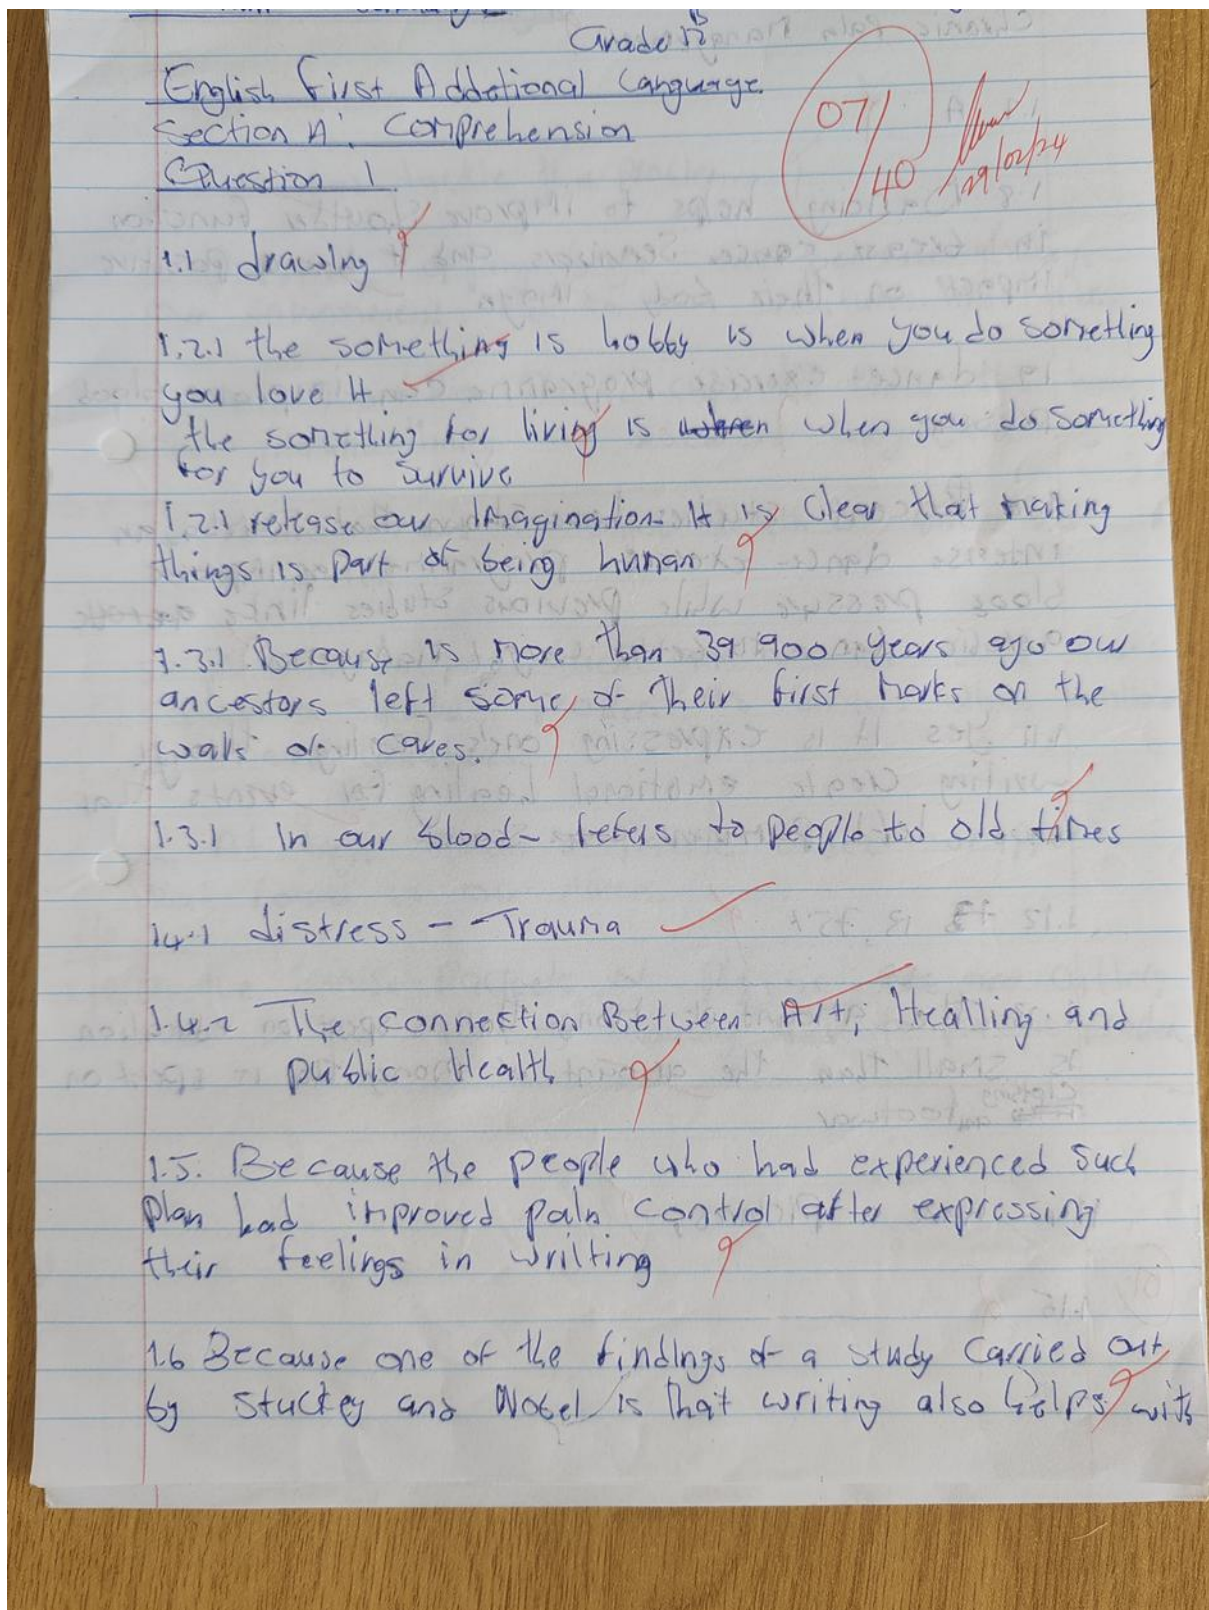 Grade 12
English First Addetional Language
Section A: Comprehension
Question 1
07/40
29/02/24
1.1 drawing
1.2.1 the something is hobby is when you do sometling
you love it
the sometling for living is when you do sometling
for you to survive
1.2.1 release our imagination. It is clear that making
things is part of being human
1.3.1 Because is more than 39 900 years ago our
ancestors left some of their first marks on the
walls of caves.
1.3.1 In our blood - refers to people to old times
1.4.1 distress - Trauma
1.4.2 The connection Between Art, Healling and
public Health
1.5. Because the people who had experienced such
plan had improved pain control after expressing
their feelings in wrilting
1.6 Because one of the findings of a study carried out
by Stuckey and Nobel is that writing also helps with